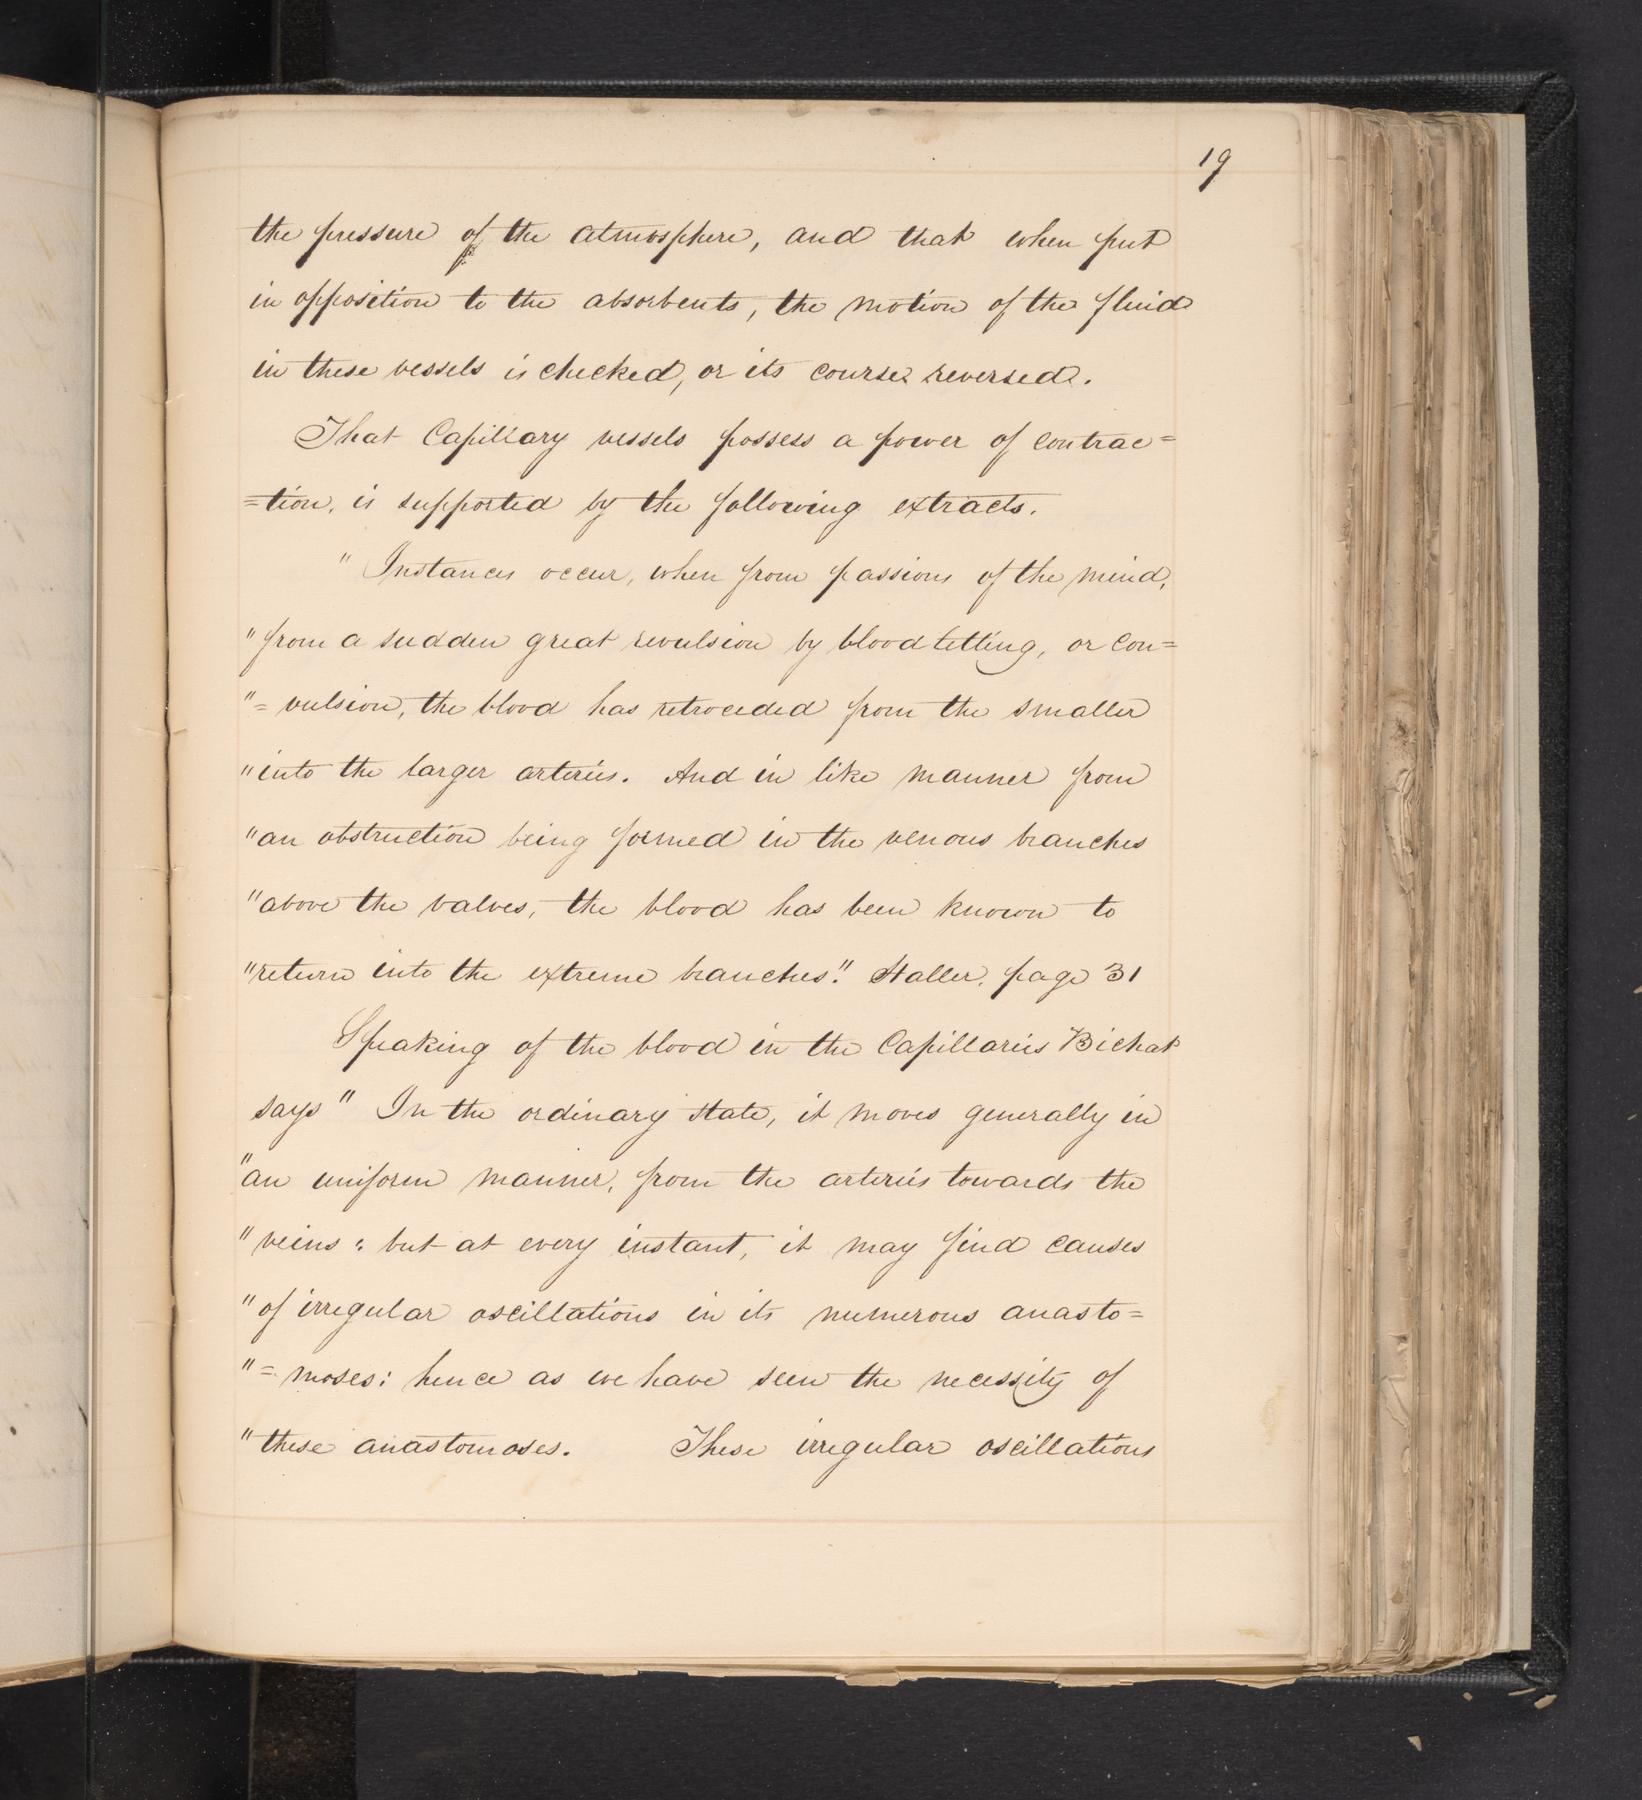 19
the pressure of the atmosphere, and that when put
in opposition to the absorbents, the motion of the fluid
in these vessels is checked, or its course reversed.
That Capillary vessels possess a power of contrac=
=tion, is supported by the following extracts.
" Instances occur, when from passions of the mind,
"from a sudden great revulsion by bloodletting, or con=
"= vulsion, the blood has retroceded from the smaller
"into the larger arteries. And in like manner from
"an obstruction being formed in the venous branches
"above the valves, the blood has been known to
"return into the extreme branches." Haller, page 31
Speaking of the blood in the Capillaries Bichat
says " In the ordinary state, it moves generally in
"an uniform manner, from the arteries towards the
"veins : but at every instant, it may find causes
"of irregular oscillations in its numerous anasto=
"= moses: hence as we have seen the necessity of
"these anastomoses. These irregular oscillations